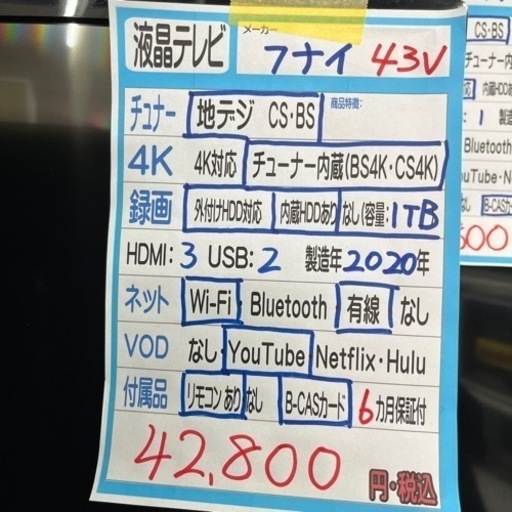 液晶テレビ メーカー フナイ 43V
チュナー 地デジ CS・BS 商品特徴:
4K 4K対応 チューナー内蔵(BS4K・CS4K)
録画 外付けHDD対応 内蔵HDDあり なし(容量:1TB
HDMI:3 USB:2 製造年2020年
ネット Wi-Fi Bluetooth 有線 なし
VOD なし YouTube Netflix・Hulu
付属品 リモコン あり なし B-CASカード 6カ月保証付
42,800 円・税込
CS・BS
チューナー内
内蔵HDD
: 1 製造
Bluetooth
YouTube・Ne
B-CASカー
500